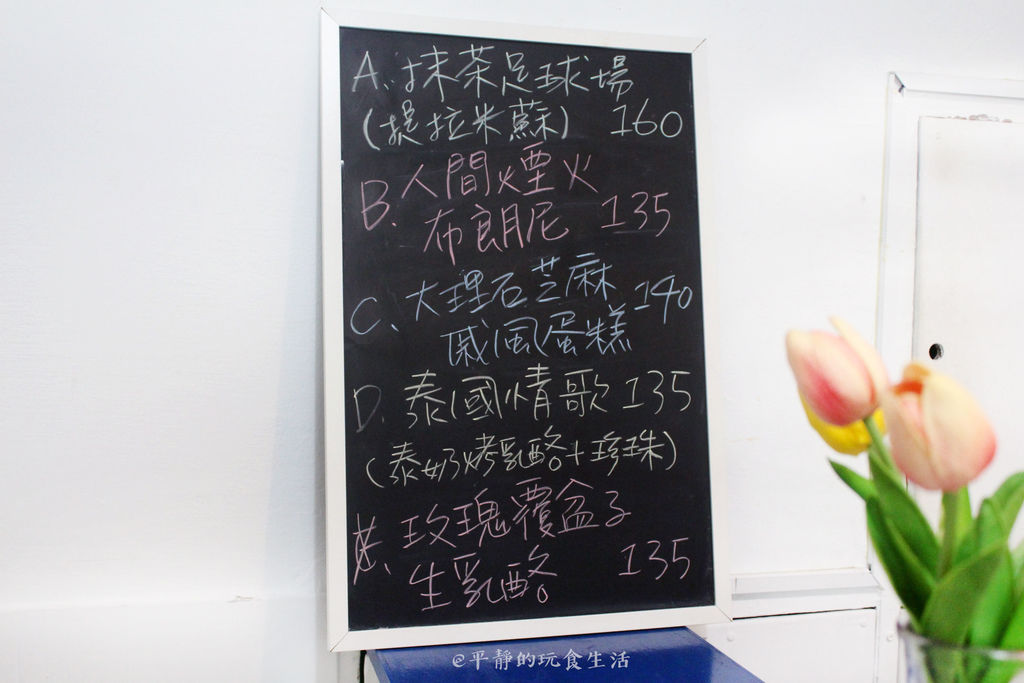 A、抹茶足球場
(提拉米蘇) 160
B.人間煙火
布朗尼 135
C、大理石芝麻 140
戚風蛋糕
D.泰國情歌 135
(泰奶烤乳酪+珍珠)
玫瑰覆盆子
生乳酪 135
@平靜的玩食生活